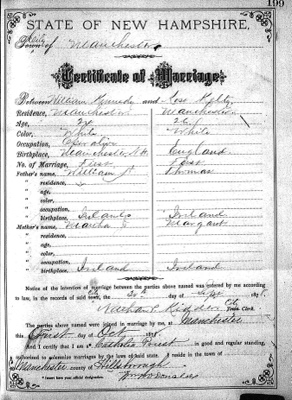 199
STATE OF NEW HAMPSHIRE,
City
Town of Manchester
Certificate of Marriage.
Between William Kennedy and Rose
Residence, Manchester Manchester
Age,
Color, White White
Occupation, Operative
Birthplace, Manchester N.H. England
No. of Marriage, First First
Father's name, William Thomas
" residence,
" age,
" color,
" occupation,
" birthplace, Ireland Ireland
Mother's name, Martha Margaret
" residence,
" age,
" color,
" occupation,
" birthplace, Ireland Ireland
Notice of the intention of marriage between the parties above named was entered by me according to
law, in the records of said town, the day of Sept 18
City
Town Clerk.
The parties above named were joined in marriage by me, at Manchester
this First day of Oct 18
And I certify that I am a Catholic Priest in good and regular standing,
authorized to solemnize marriages by the laws of said state. I reside in the town of
Manchester county of Hillsborough
* Insert here your official designation.